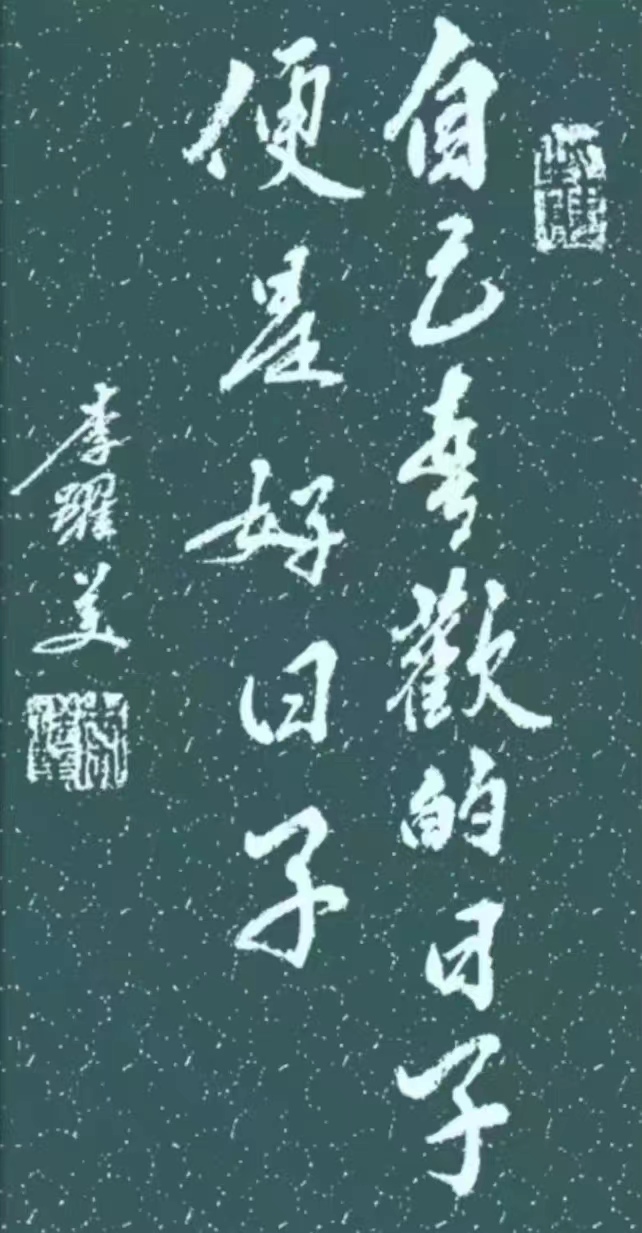 自己喜歡的日子
便是好日子
李躍美